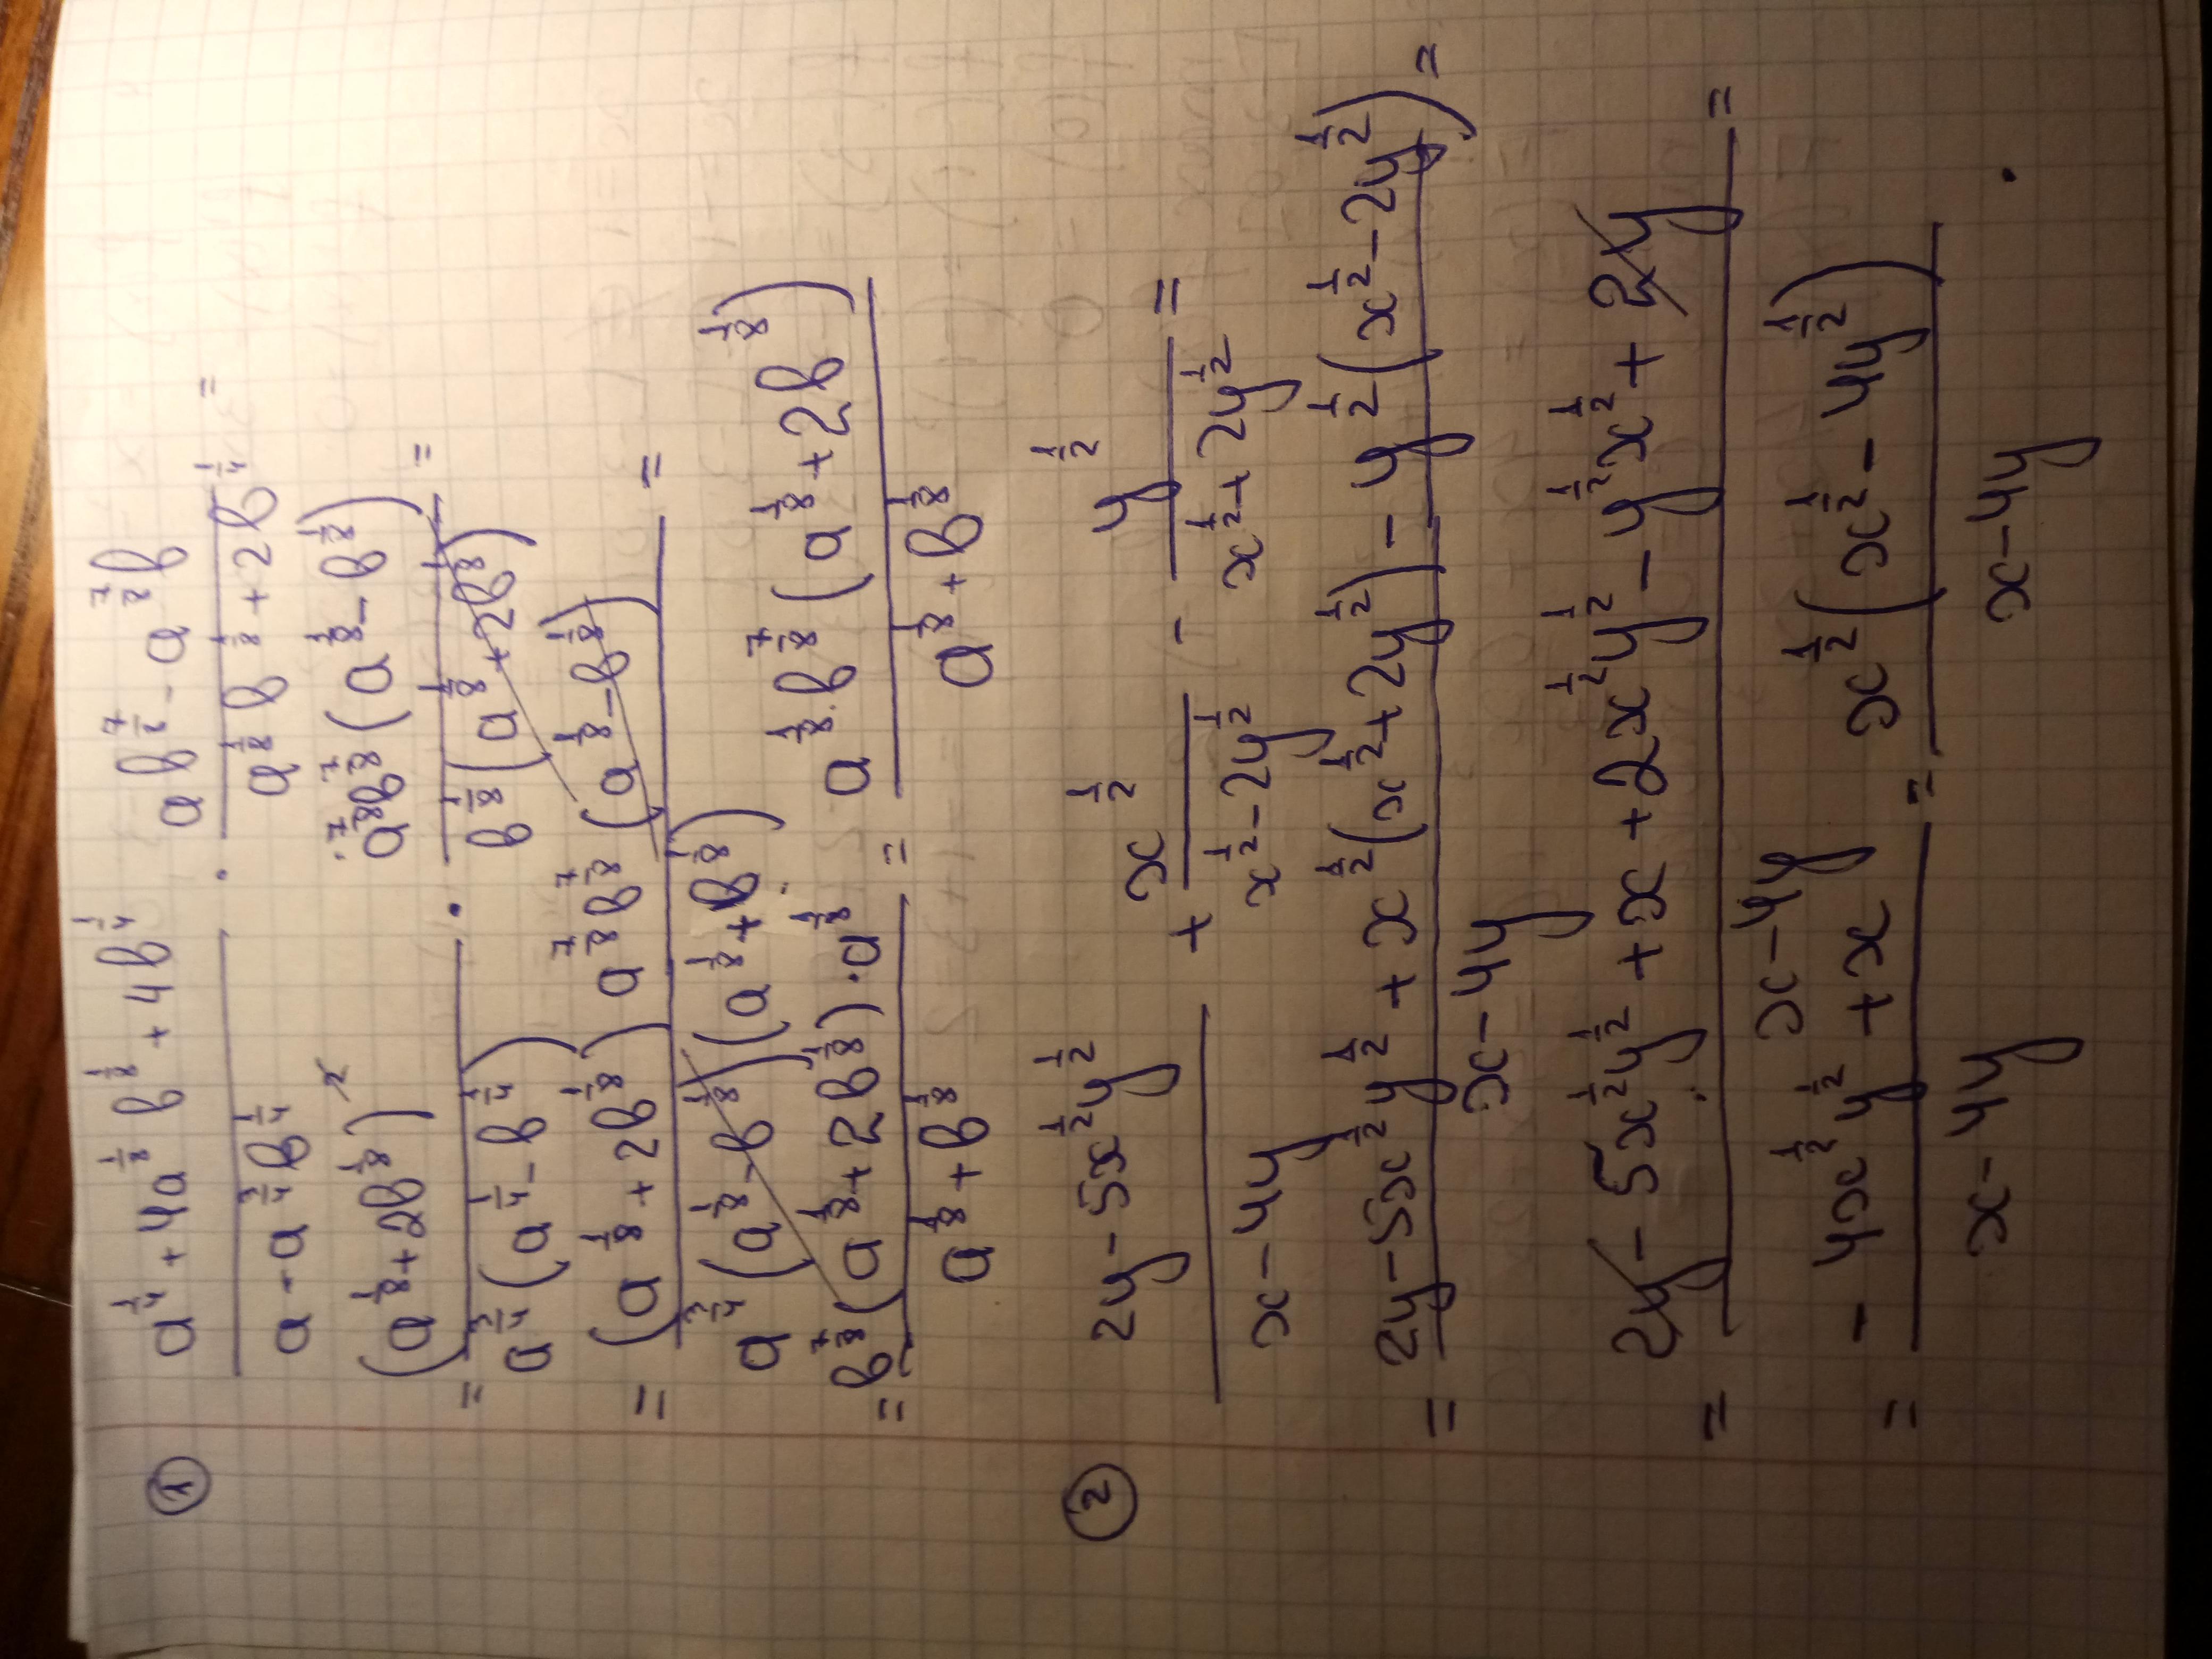 ① (a^{1/4} + 4a^{1/8} b^{1/8} + 4b^{1/4}) / (a - a^{3/4} b^{1/4}) · (ab^{7/8} - a^{7/8} b) / (a^{1/8} b^{1/8} + 2b^{1/4}) =
= (a^{1/8} + 2b^{1/8})^2 / (a^{3/4} (a^{1/4} - b^{1/4})) · (a^{7/8} b^{7/8} (a^{1/8} - b^{1/8})) / (b^{1/8} (a^{1/8} + 2b^{1/8})) =
= ((a^{1/8} + 2b^{1/8}) a^{7/8} b^{7/8} (a^{1/8} - b^{1/8})) / (a^{3/4} (a^{1/8} - b^{1/8}) (a^{1/8} + b^{1/8})) =
= (b^{7/8} (a^{1/8} + 2b^{1/8}) · a^{1/8}) / (a^{1/8} + b^{1/8}) = (a^{1/8} · b^{7/8} (a^{1/8} + 2b^{1/8})) / (a^{1/8} + b^{1/8})
② (2y - 5x^{1/2} y^{1/2}) / (x - 4y) + x^{1/2} / (x^{1/2} - 2y^{1/2}) - y^{1/2} / (x^{1/2} + 2y^{1/2}) =
= (2y - 5x^{1/2} y^{1/2} + x^{1/2} (x^{1/2} + 2y^{1/2}) - y^{1/2} (x^{1/2} - 2y^{1/2})) / (x - 4y) =
= (2y - 5x^{1/2} y^{1/2} + x + 2x^{1/2} y^{1/2} - y^{1/2} x^{1/2} + 2y) / (x - 4y) =
= (- 4x^{1/2} y^{1/2} + x) / (x - 4y) = (x^{1/2} (x^{1/2} - 4y^{1/2})) / (x - 4y) .